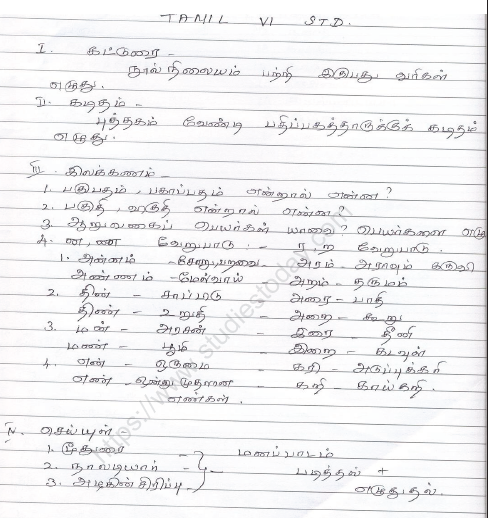 TAMIL VI STD.
I. கட்டுரை -
நூல்நிலையம் பற்றி இருபது வரிகள்
எழுது.
II. கடிதம் -
புத்தகம் வேண்டி பதிப்பகத்தாருக்குக் கடிதம்
எழுது.
III. இலக்கணம் -
1. பகுபதம், பகாப்பதம் என்றால் என்ன?
2. பகுதி, விகுதி என்றால் என்ன?
3. ஆறுவகைப் பெயர்கள் யாவை? பெயர்களை எழு
4. ன, ண வேறுபாடு. - ர ற வேறுபாடு.
1. அன்னம் - சோறு, பறவை - அரம் - அராவும் கருவி
அண்ணம் - மேல்வாய் அறம் - தருமம்
2. தின் - சாப்பிடு அரை - பாதி
திண் - உறுதி - அறை - கூறு
3. மன் - அரசன் - இரை - தீனி
மண் - பூமி - இறை - கடவுள்
4. என் - ஒருமை - கரி - அடுப்புக்கரி
எண் - ஒன்று முதலான - கறி - காய்கறி.
எண்கள்.
IV. செய்யுள்
1. மூதுரை - மனப்பாடம்
2. நாலடியார் - படித்தல் +
3. அழகின் சிரிப்பு - எழுதுதல்.
https://www.studiestoday.com